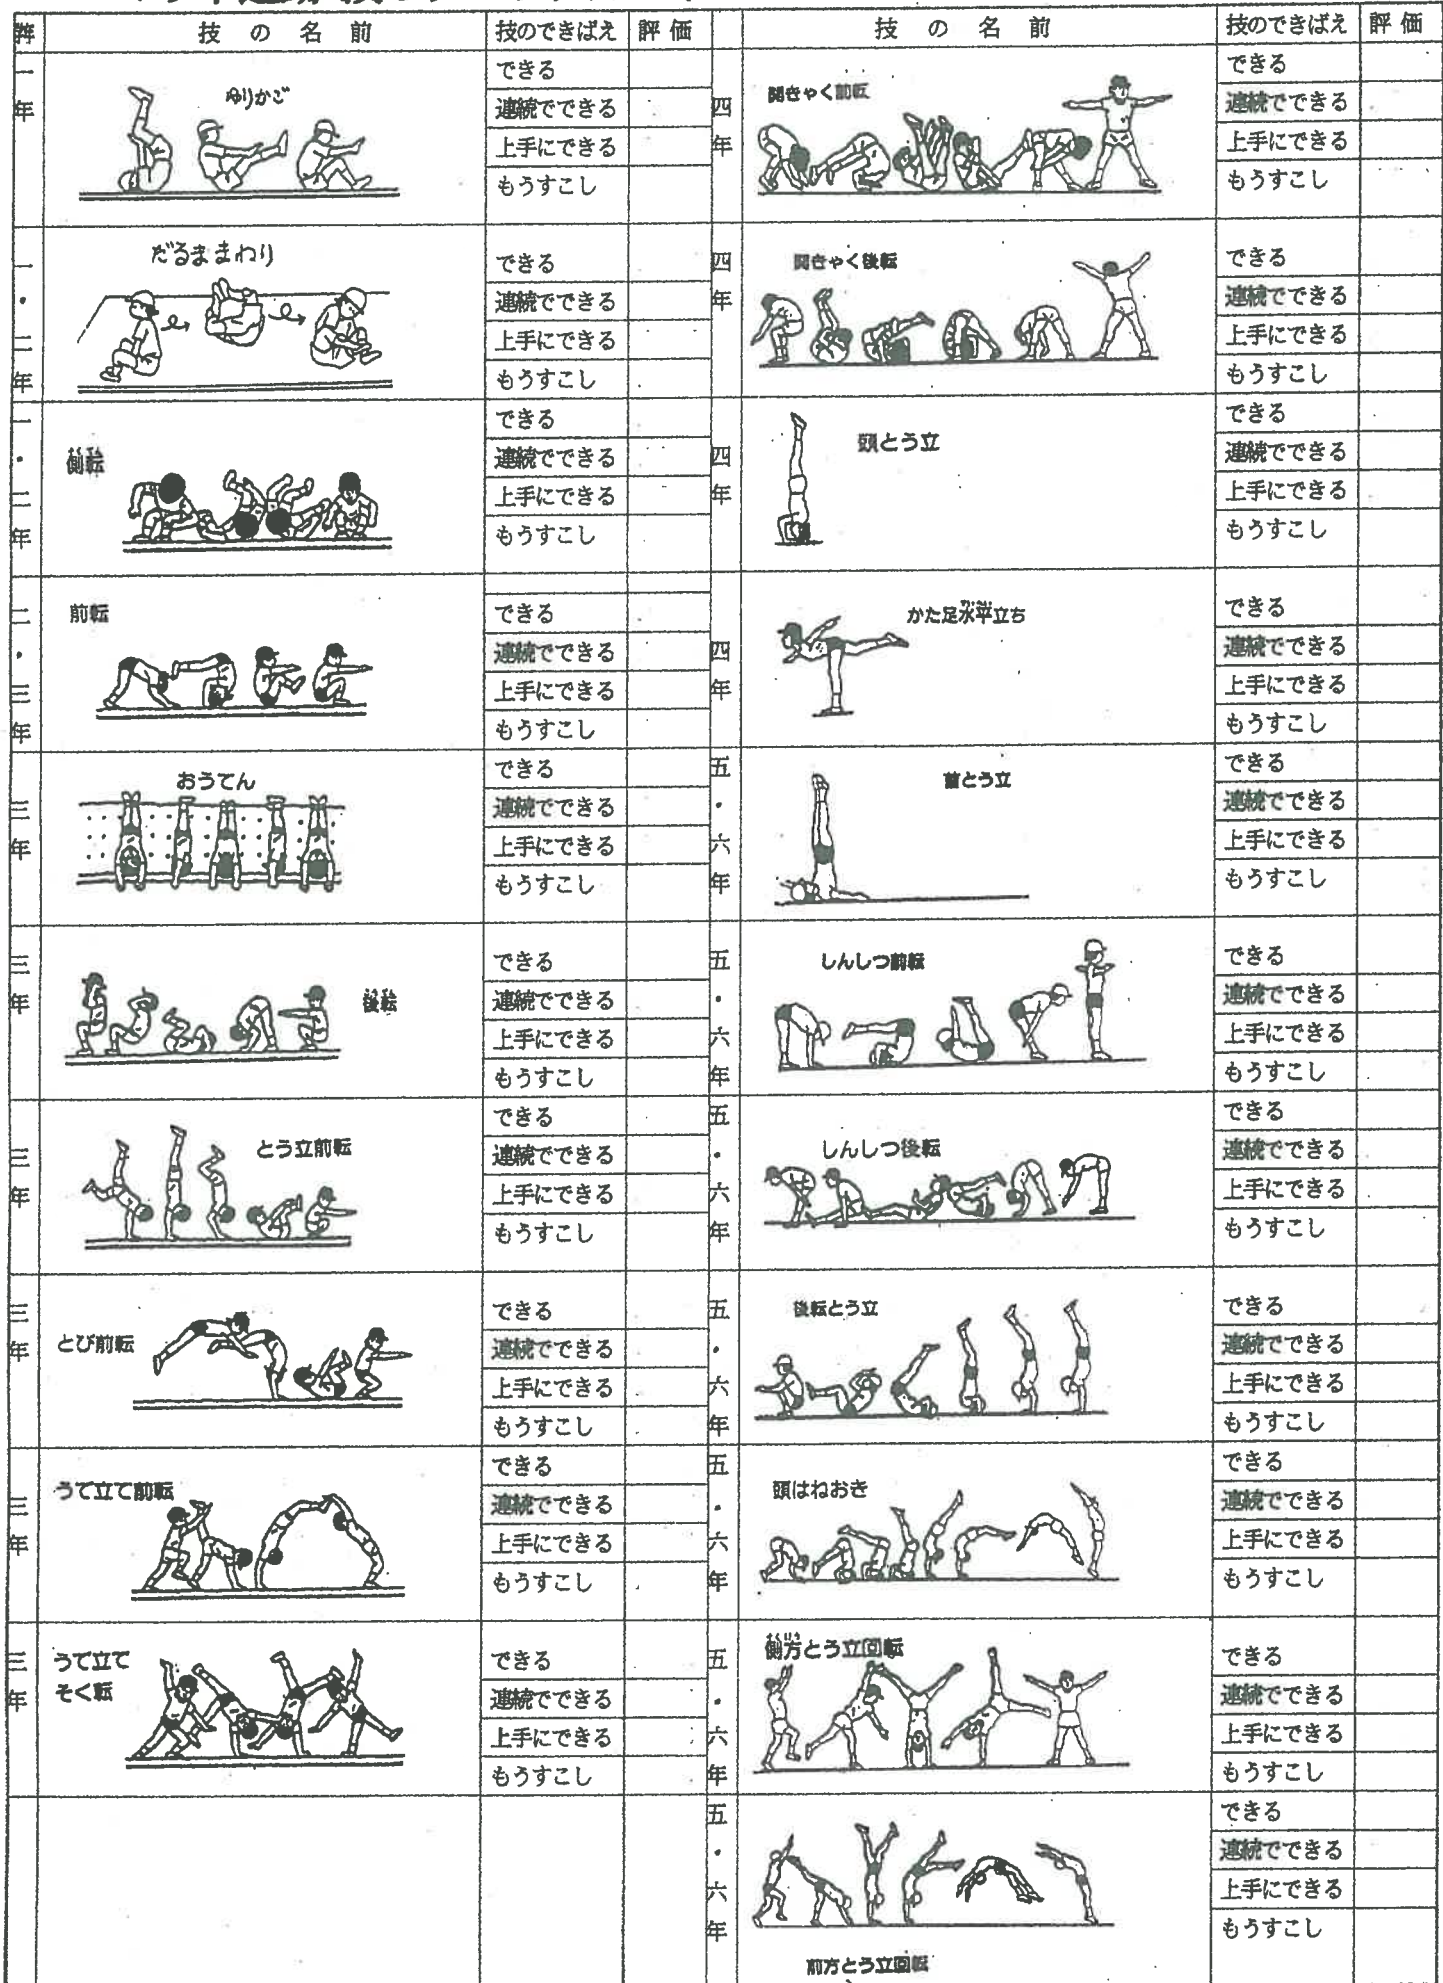 技の名前 技のできばえ 評価
一年
ゆりかご
できる
連続でできる
上手にできる
もうすこし
一・二年
だるままわり
できる
連続でできる
上手にできる
もうすこし
一・二年
側転
できる
連続でできる
上手にできる
もうすこし
二・三年
前転
できる
連続でできる
上手にできる
もうすこし
三年
おうてん
できる
連続でできる
上手にできる
もうすこし
三年
後転
できる
連続でできる
上手にできる
もうすこし
三年
とう立前転
できる
連続でできる
上手にできる
もうすこし
三年
とび前転
できる
連続でできる
上手にできる
もうすこし
三年
うで立て前転
できる
連続でできる
上手にできる
もうすこし
三年
うで立て
そく転
できる
連続でできる
上手にできる
もうすこし
技の名前 技のできばえ 評価
四年
開きゃく前転
できる
連続でできる
上手にできる
もうすこし
四年
開きゃく後転
できる
連続でできる
上手にできる
もうすこし
四年
頭とう立
できる
連続でできる
上手にできる
もうすこし
四年
かた足水平立ち
できる
連続でできる
上手にできる
もうすこし
五・六年
首とう立
できる
連続でできる
上手にできる
もうすこし
五・六年
しんしつ前転
できる
連続でできる
上手にできる
もうすこし
五・六年
しんしつ後転
できる
連続でできる
上手にできる
もうすこし
五・六年
後転とう立
できる
連続でできる
上手にできる
もうすこし
五・六年
頭はねおき
できる
連続でできる
上手にできる
もうすこし
五・六年
側方とう立回転
できる
連続でできる
上手にできる
もうすこし
五・六年
前方とう立回転
できる
連続でできる
上手にできる
もうすこし